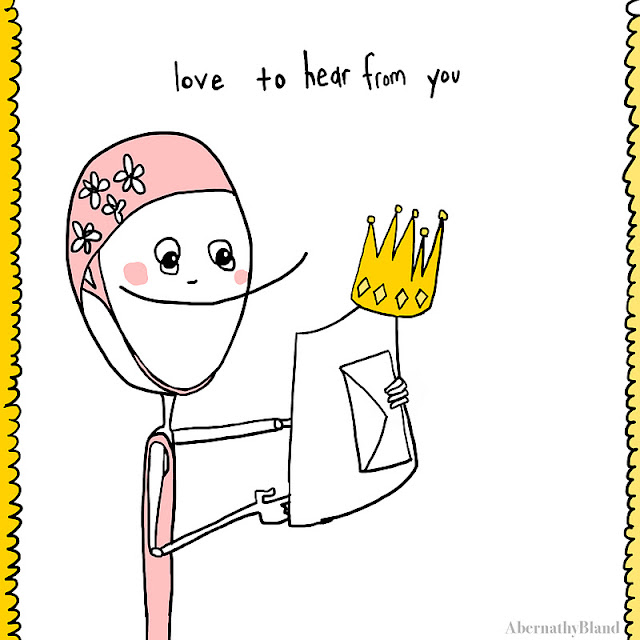 love to hear from you
AbernathyBland